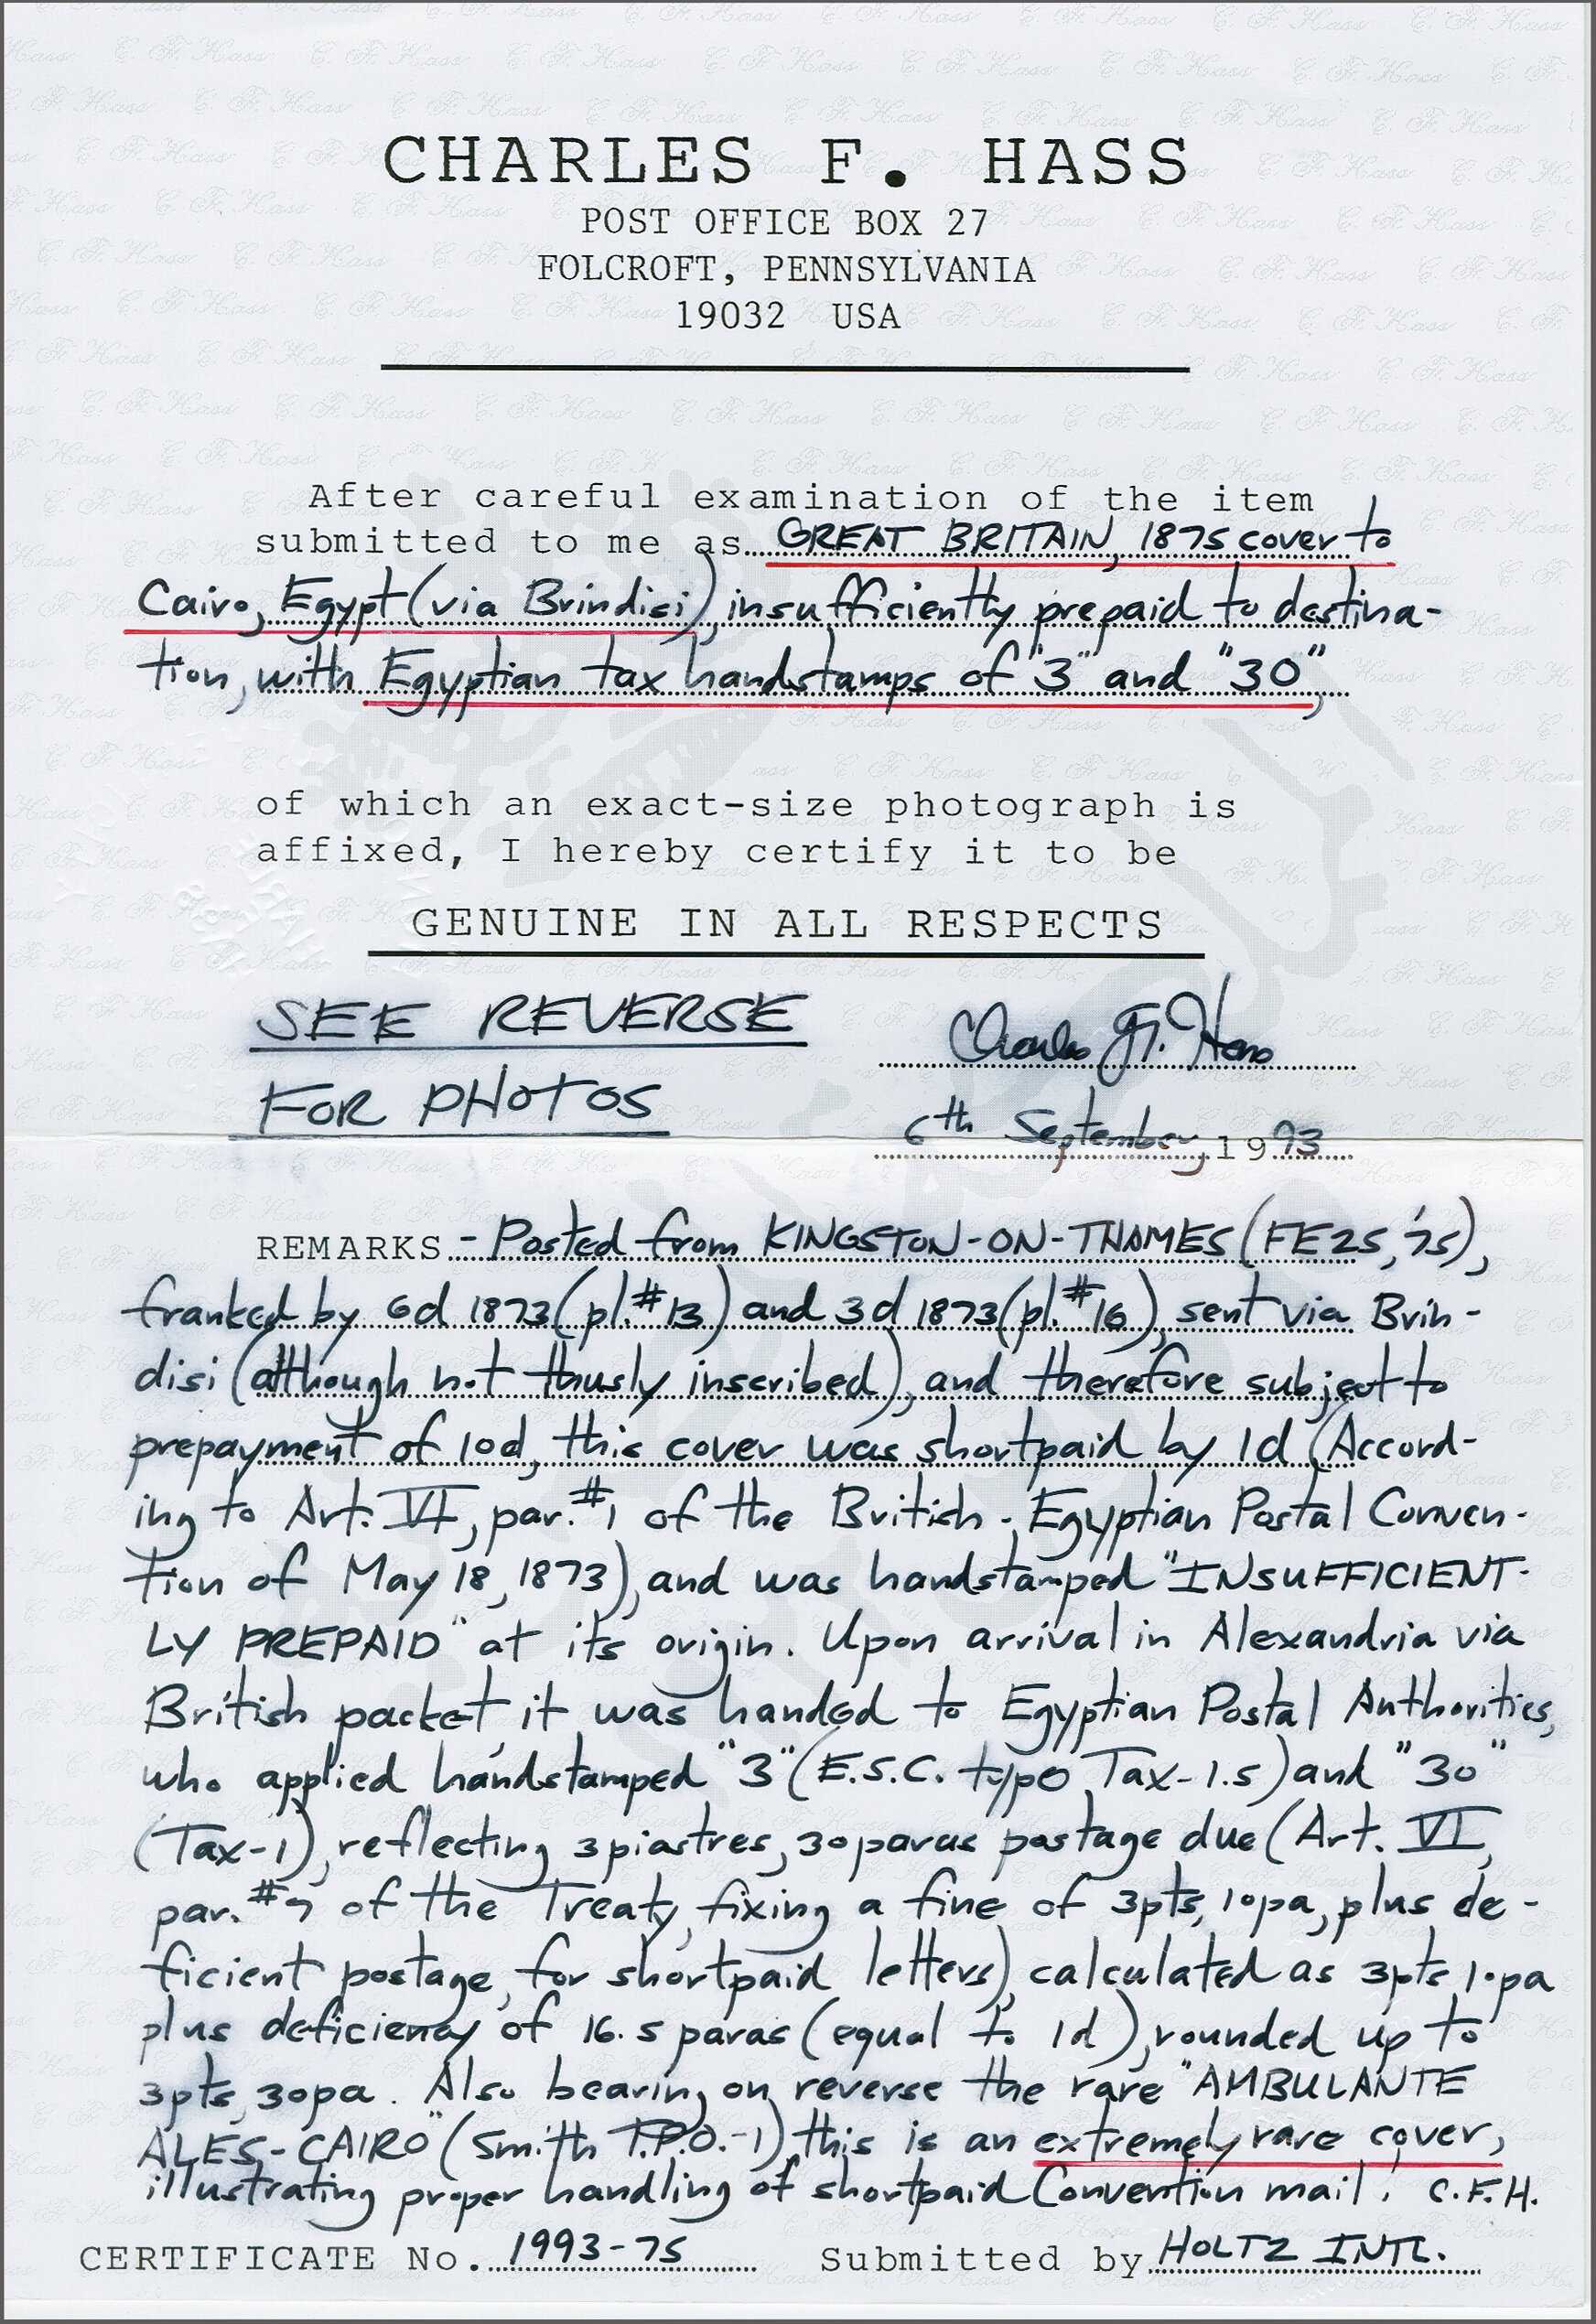 CHARLES F. HASS
POST OFFICE BOX 27
FOLCROFT, PENNSYLVANIA
19032 USA
After careful examination of the item
submitted to me as GREAT BRITAIN, 1875 cover to
Cairo, Egypt (via Brindisi), insufficiently prepaid to destina-
tion, with Egyptian tax handstamps of "3" and "30",
of which an exact-size photograph is
affixed, I hereby certify it to be
GENUINE IN ALL RESPECTS
SEE REVERSE
FOR PHOTOS
Charles F. Hass
6th September, 1993
REMARKS - Posted from KINGSTON-ON-THAMES (FE25,'75),
franked by 6d 1873 (pl.#13) and 3d 1873 (pl.#16), sent via Brin-
disi (although not thusly inscribed), and therefore subject to
prepayment of 10d, this cover was shortpaid by 1d (Accord-
ing to Art. VI, par.#1 of the British-Egyptian Postal Conven-
tion of May 18, 1873), and was handstamped "INSUFFICIENT-
LY PREPAID" at its origin. Upon arrival in Alexandria via
British packet, it was handed to Egyptian Postal Authorities,
who applied handstamped "3" (E.S.C. type Tax-1.5) and "30"
(Tax-1), reflecting 3 piastres, 30 paras postage due (Art. VI,
par.#7 of the Treaty, fixing a fine of 3pts, 10pa, plus de-
ficient postage, for shortpaid letters), calculated as 3pts 10pa
plus deficiency of 16.5 paras (equal to 1d), rounded up to
3pts, 30pa. Also bearing on reverse the rare "AMBULANTE
ALES-CAIRO" (Smith T.P.O.-1), this is an extremely rare cover,
illustrating proper handling of shortpaid Convention mail. C.F.H.
CERTIFICATE No. 1993-75 Submitted by HOLTZ INTL.